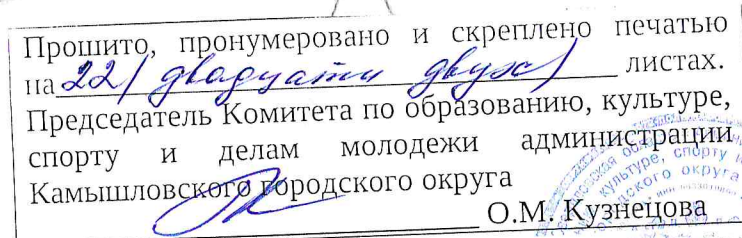 Прошито, пронумеровано и скреплено печатью
на 22/ двадцати двух/ листах.
Председатель Комитета по образованию, культуре,
спорту и делам молодежи администрации
Камышловского городского округа
О.М. Кузнецова
культуре, спорту и
округа